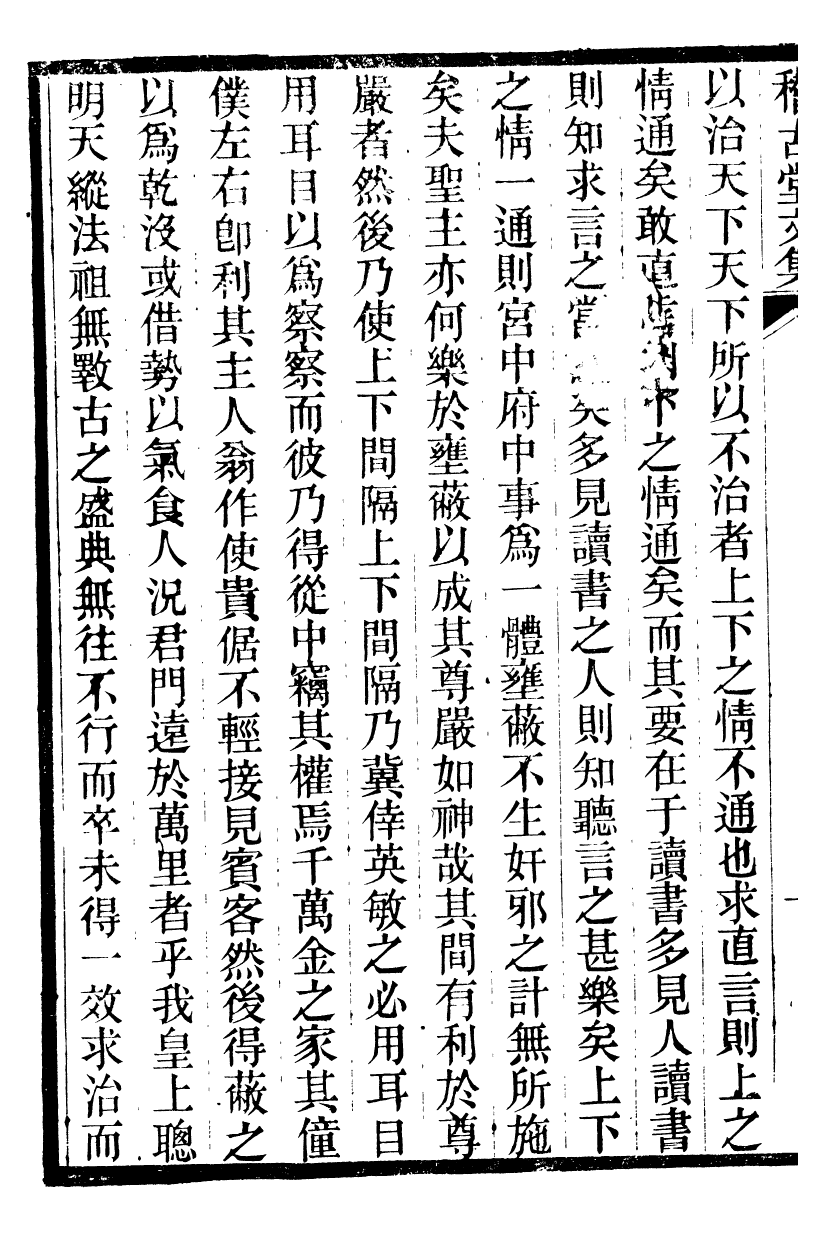 稽古堂文集
以治天下天下所以不治者上下之情不通也求直言則上之
情通矣敢直言則下之情通矣而其要在于讀書多見人讀書
則知求言之當矣多見讀書之人則知聽言之甚樂矣上下
之情一通則宮中府中事爲一體壅蔽不生奸邪之計無所施
矣夫聖主亦何樂於壅蔽以成其尊嚴如神哉其間有利於尊
嚴者然後乃使上下間隔上下間隔乃冀倖英敏之必用耳目
用耳目以爲察察而彼乃得從中竊其權焉千萬金之家其僮
僕左右卽利其主人翁作使貴倨不輕接見賓客然後得蔽之
以爲乾沒或借勢以氣食人況君門遠於萬里者乎我皇上聰
明天縱法祖無斁古之盛典無往不行而卒未得一效求治而